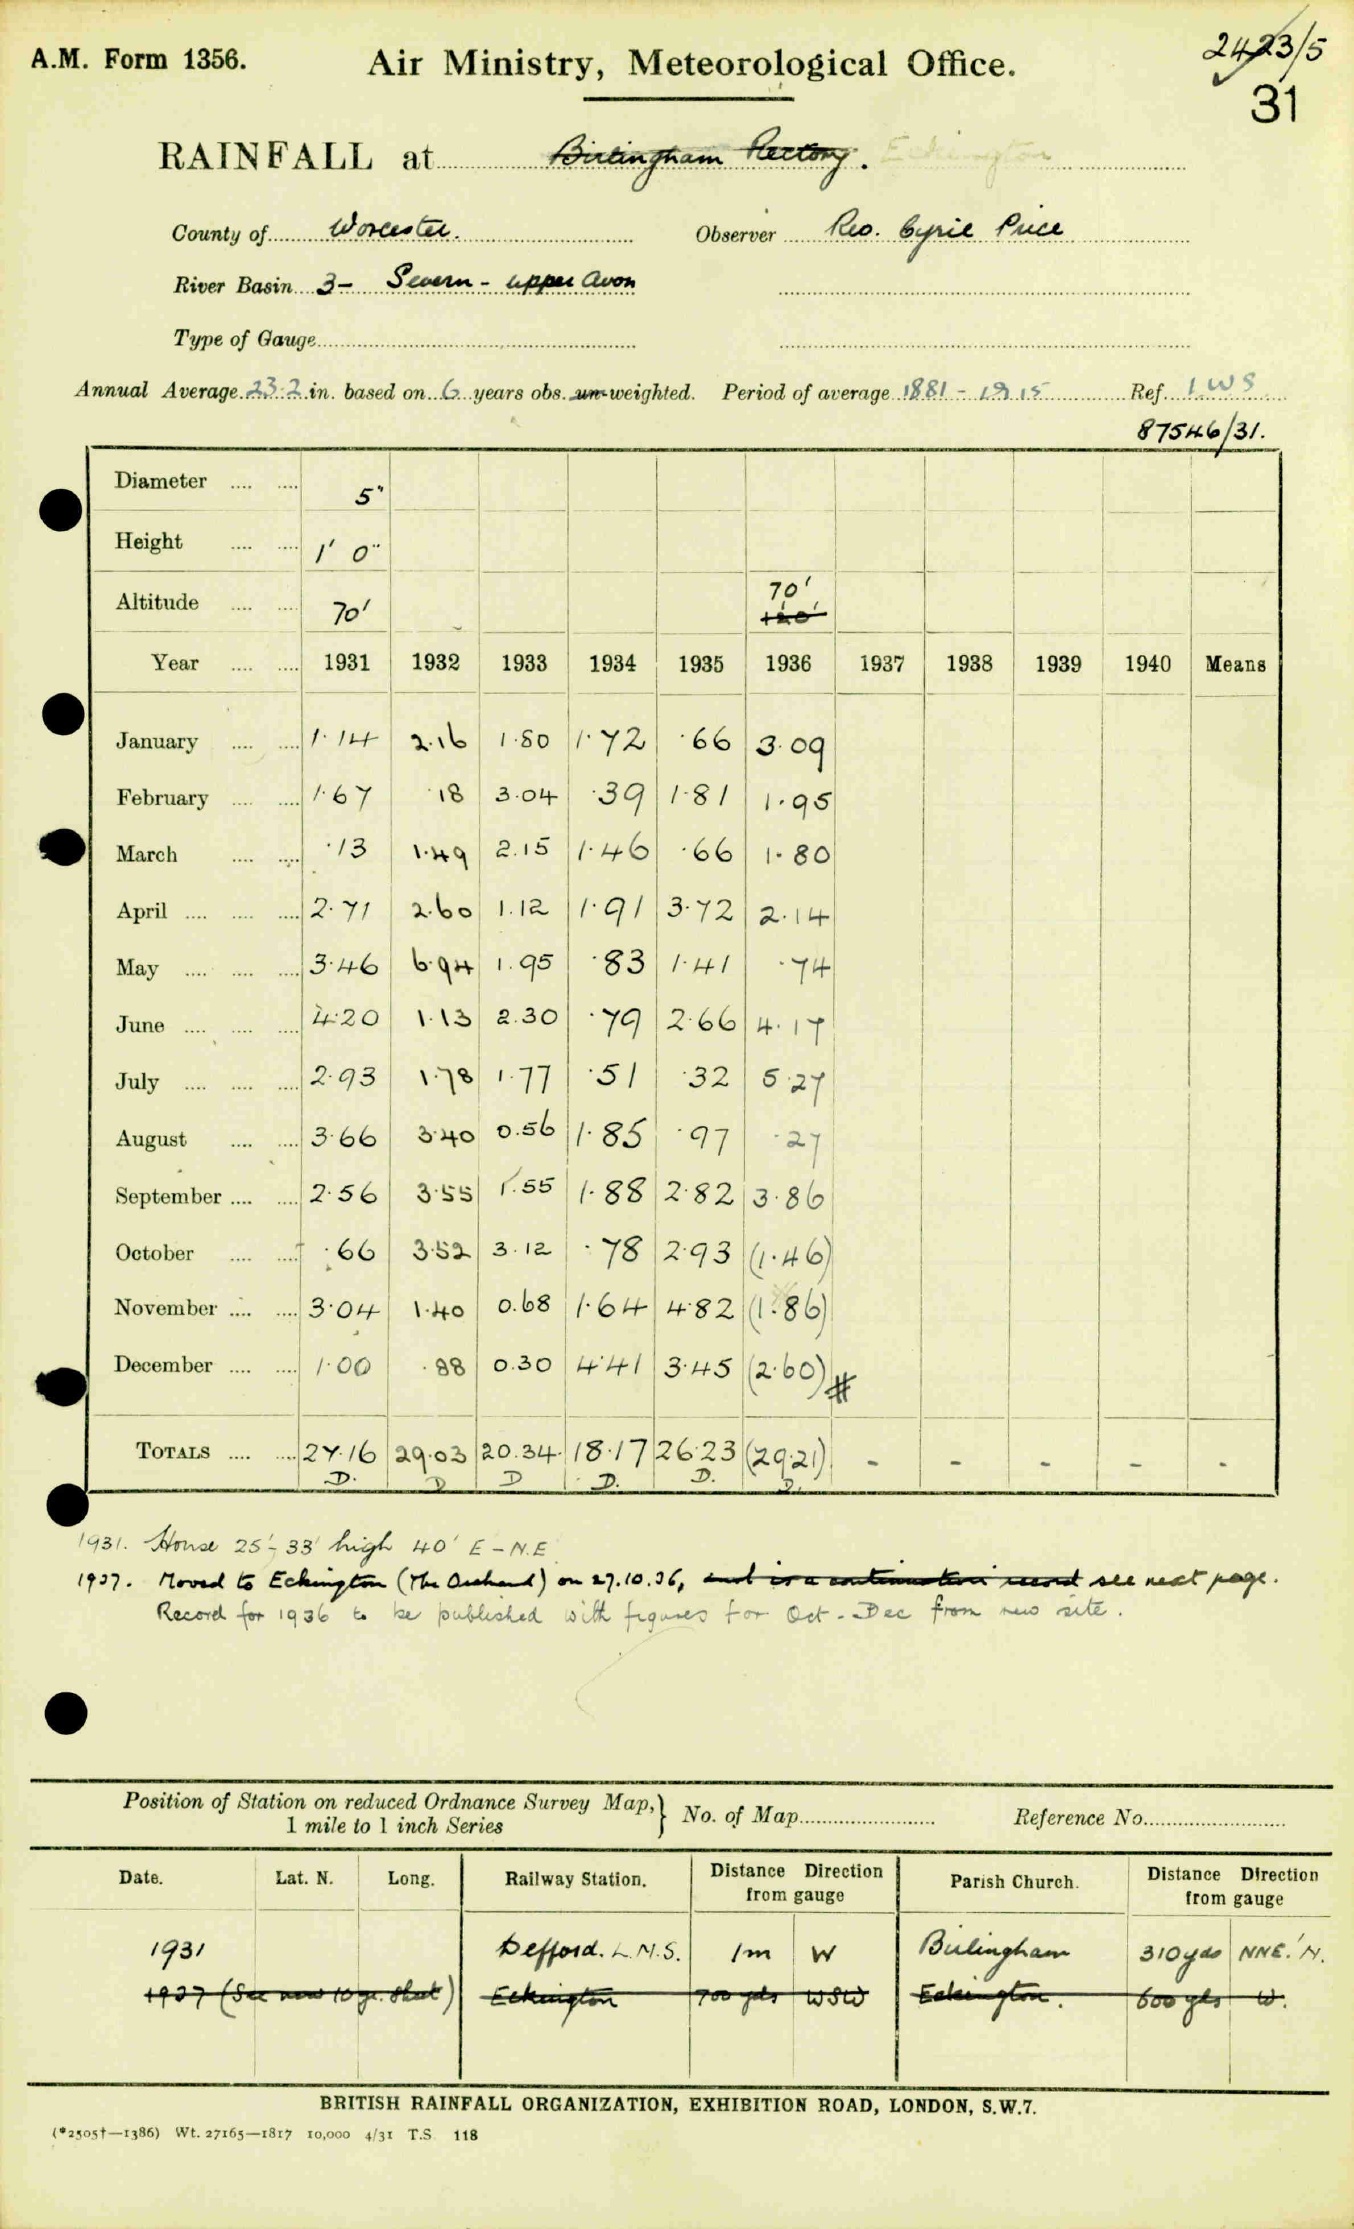 A.M. Form 1356.
Air Ministry, Meteorological Office.
2423/5
31
RAINFALL at Birlingham Rectory. Eckington
County of Worcester.
Observer Rev. Cyril Price
River Basin 3- Severn - upper Avon
Type of Gauge
Annual Average 23.2 in. based on 6 years obs. un-weighted. Period of average 1881 - 1915 Ref. I.W.S
87546/31.
Diameter 5"
Height 1' 0"
70'
Altitude 70' 120'
Year 1931 1932 1933 1934 1935 1936 1937 1938 1939 1940 Means
January 1.14 2.16 1.80 1.72 .66 3.09
February 1.67 .18 3.04 .39 1.81 1.95
March .13 1.49 2.15 1.46 .66 1.80
April 2.71 2.60 1.12 1.91 3.72 2.14
May 3.46 6.94 1.95 .83 1.41 .74
June 4.20 1.13 2.30 .79 2.66 4.17
July 2.93 1.78 1.77 .51 .32 5.27
August 3.66 3.40 0.56 1.85 .97 .27
September 2.56 3.55 1.55 1.88 2.82 3.86
October .66 3.52 3.12 .78 2.93 (1.46)
November 3.04 1.40 0.68 1.64 4.82 (1.86)
December 1.00 .88 0.30 4.41 3.45 (2.60) #
TOTALS 27.16 29.03 20.34 18.17 26.23 (29.21) - - - - -
D. D D D. D. D.
1931. House 25'-33' high 40' E-N.E
1937. Moved to Eckington (The Orchard) on 27.10.36, and is a continuation record see next page.
Record for 1936 to be published with figures for Oct - Dec from new site.
Position of Station on reduced Ordnance Survey Map, 1 mile to 1 inch Series } No. of Map Reference No.
Date. Lat. N. Long. Railway Station. Distance Direction from gauge Parish Church. Distance Direction from gauge
1931 Defford. L.M.S. 1m W Birlingham 310 yds NNE.'N.
1937 (See new 10 yr. sheet) Eckington 700 yds WSW Eckington. 600 yds W.
BRITISH RAINFALL ORGANIZATION, EXHIBITION ROAD, LONDON, S.W.7.
(*2505†—1386) Wt. 27165—1817 10,000 4/31 T.S. 118